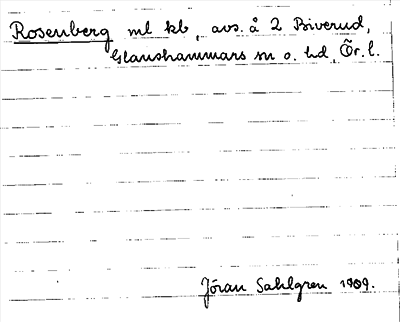 Rosenberg ml kb, avs. å 2 Biverud,
Glanshammars sn o. hd, Ör. l.
Jöran Sahlgren 1909.